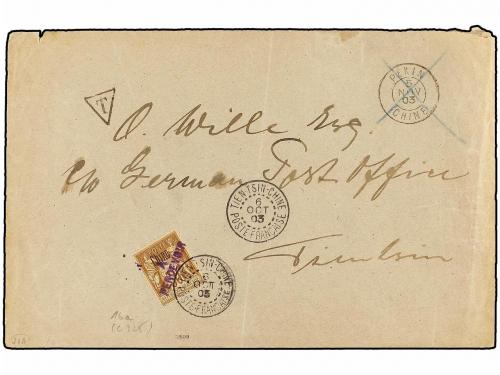 PEKIN
5
NOV
03
(CHINE)
T
O. Wille Esq.
c/o German Post Office
TIENTSIN-CHINE
6
OCT
03
POSTE FRANÇAISE
Tientsin
A PERCEVOIR
TIENTSIN-CHINE
6
OCT
03
POSTE FRANÇAISE
16a